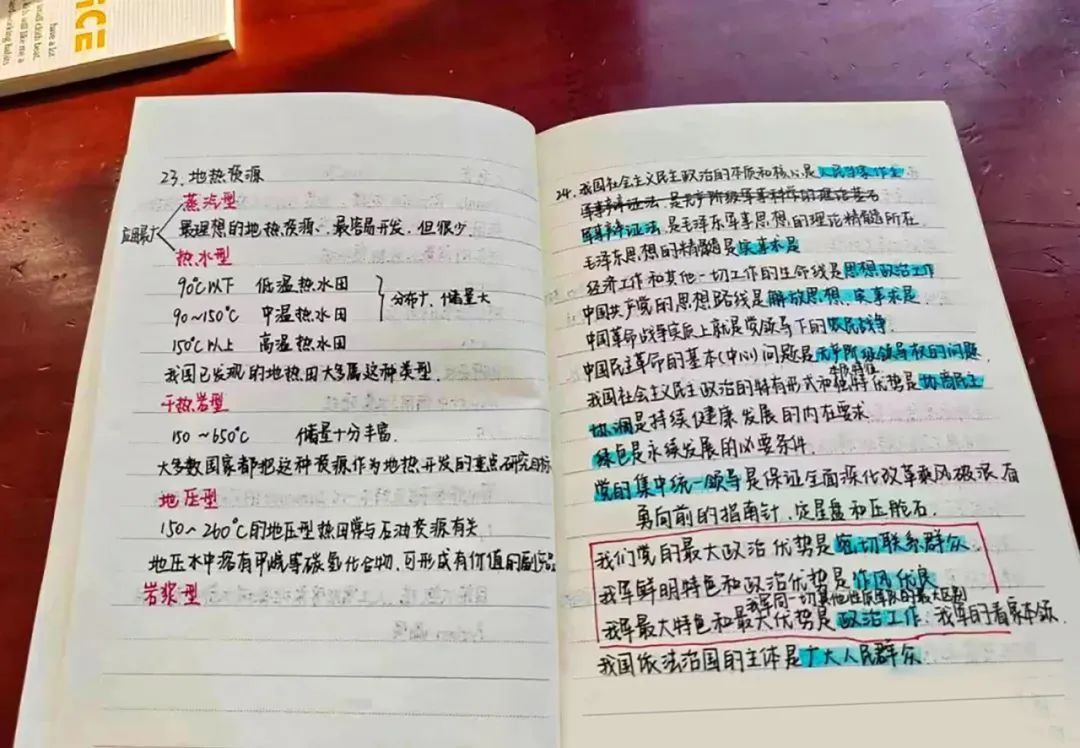 iCE
have a lot
small cloth boat.
ds will like me a
working habits
23. 地热资源
蒸汽型
应用最广
最理想的地热资源、最容易开发，但很少.
热水型
90℃以下 低温热水田
90~150℃ 中温热水田
分布广，储量大
150℃以上 高温热水田
我国已发现的地热田大多属这种类型.
干热岩型
150~650℃ 储量十分丰富.
大多数国家都把这种资源作为地热开发的重点研究目标
地压型
150~260℃的地压型热田常与石油资源有关
地压水中溶有甲烷等碳氢化合物，可形成有价值的副产品
岩浆型
24. 我国社会主义民主政治的本质和核心是人民当家作主
军事辩证法是无产阶级军事科学的理论基石
军事辩证法是毛泽东军事思想的理论精髓所在
毛泽东思想的精髓是实事求是
经济工作和其他一切工作的生命线是思想政治工作
中国共产党的思想路线是解放思想，实事求是
中国革命战争实质上就是党领导下的农民战争.
中国民主革命的基本(中心)问题是无产阶级领导权的问题
我国社会主义民主政治的特有形式和独特优势是协商民主
协调是持续健康发展的内在要求
绿色是永续发展的必要条件.
党的集中统一领导是保证全面深化改革乘风破浪、奋
勇向前的指南针，定星盘和压舱石.
我们党的最大政治优势是密切联系群众.
我军鲜明特色和政治优势是作风优良
我军同一切其他性质军队的最大区别
我军最大特色和最大优势是政治工作、我军的看家本领.
我国依法治国的主体是广大人民群众